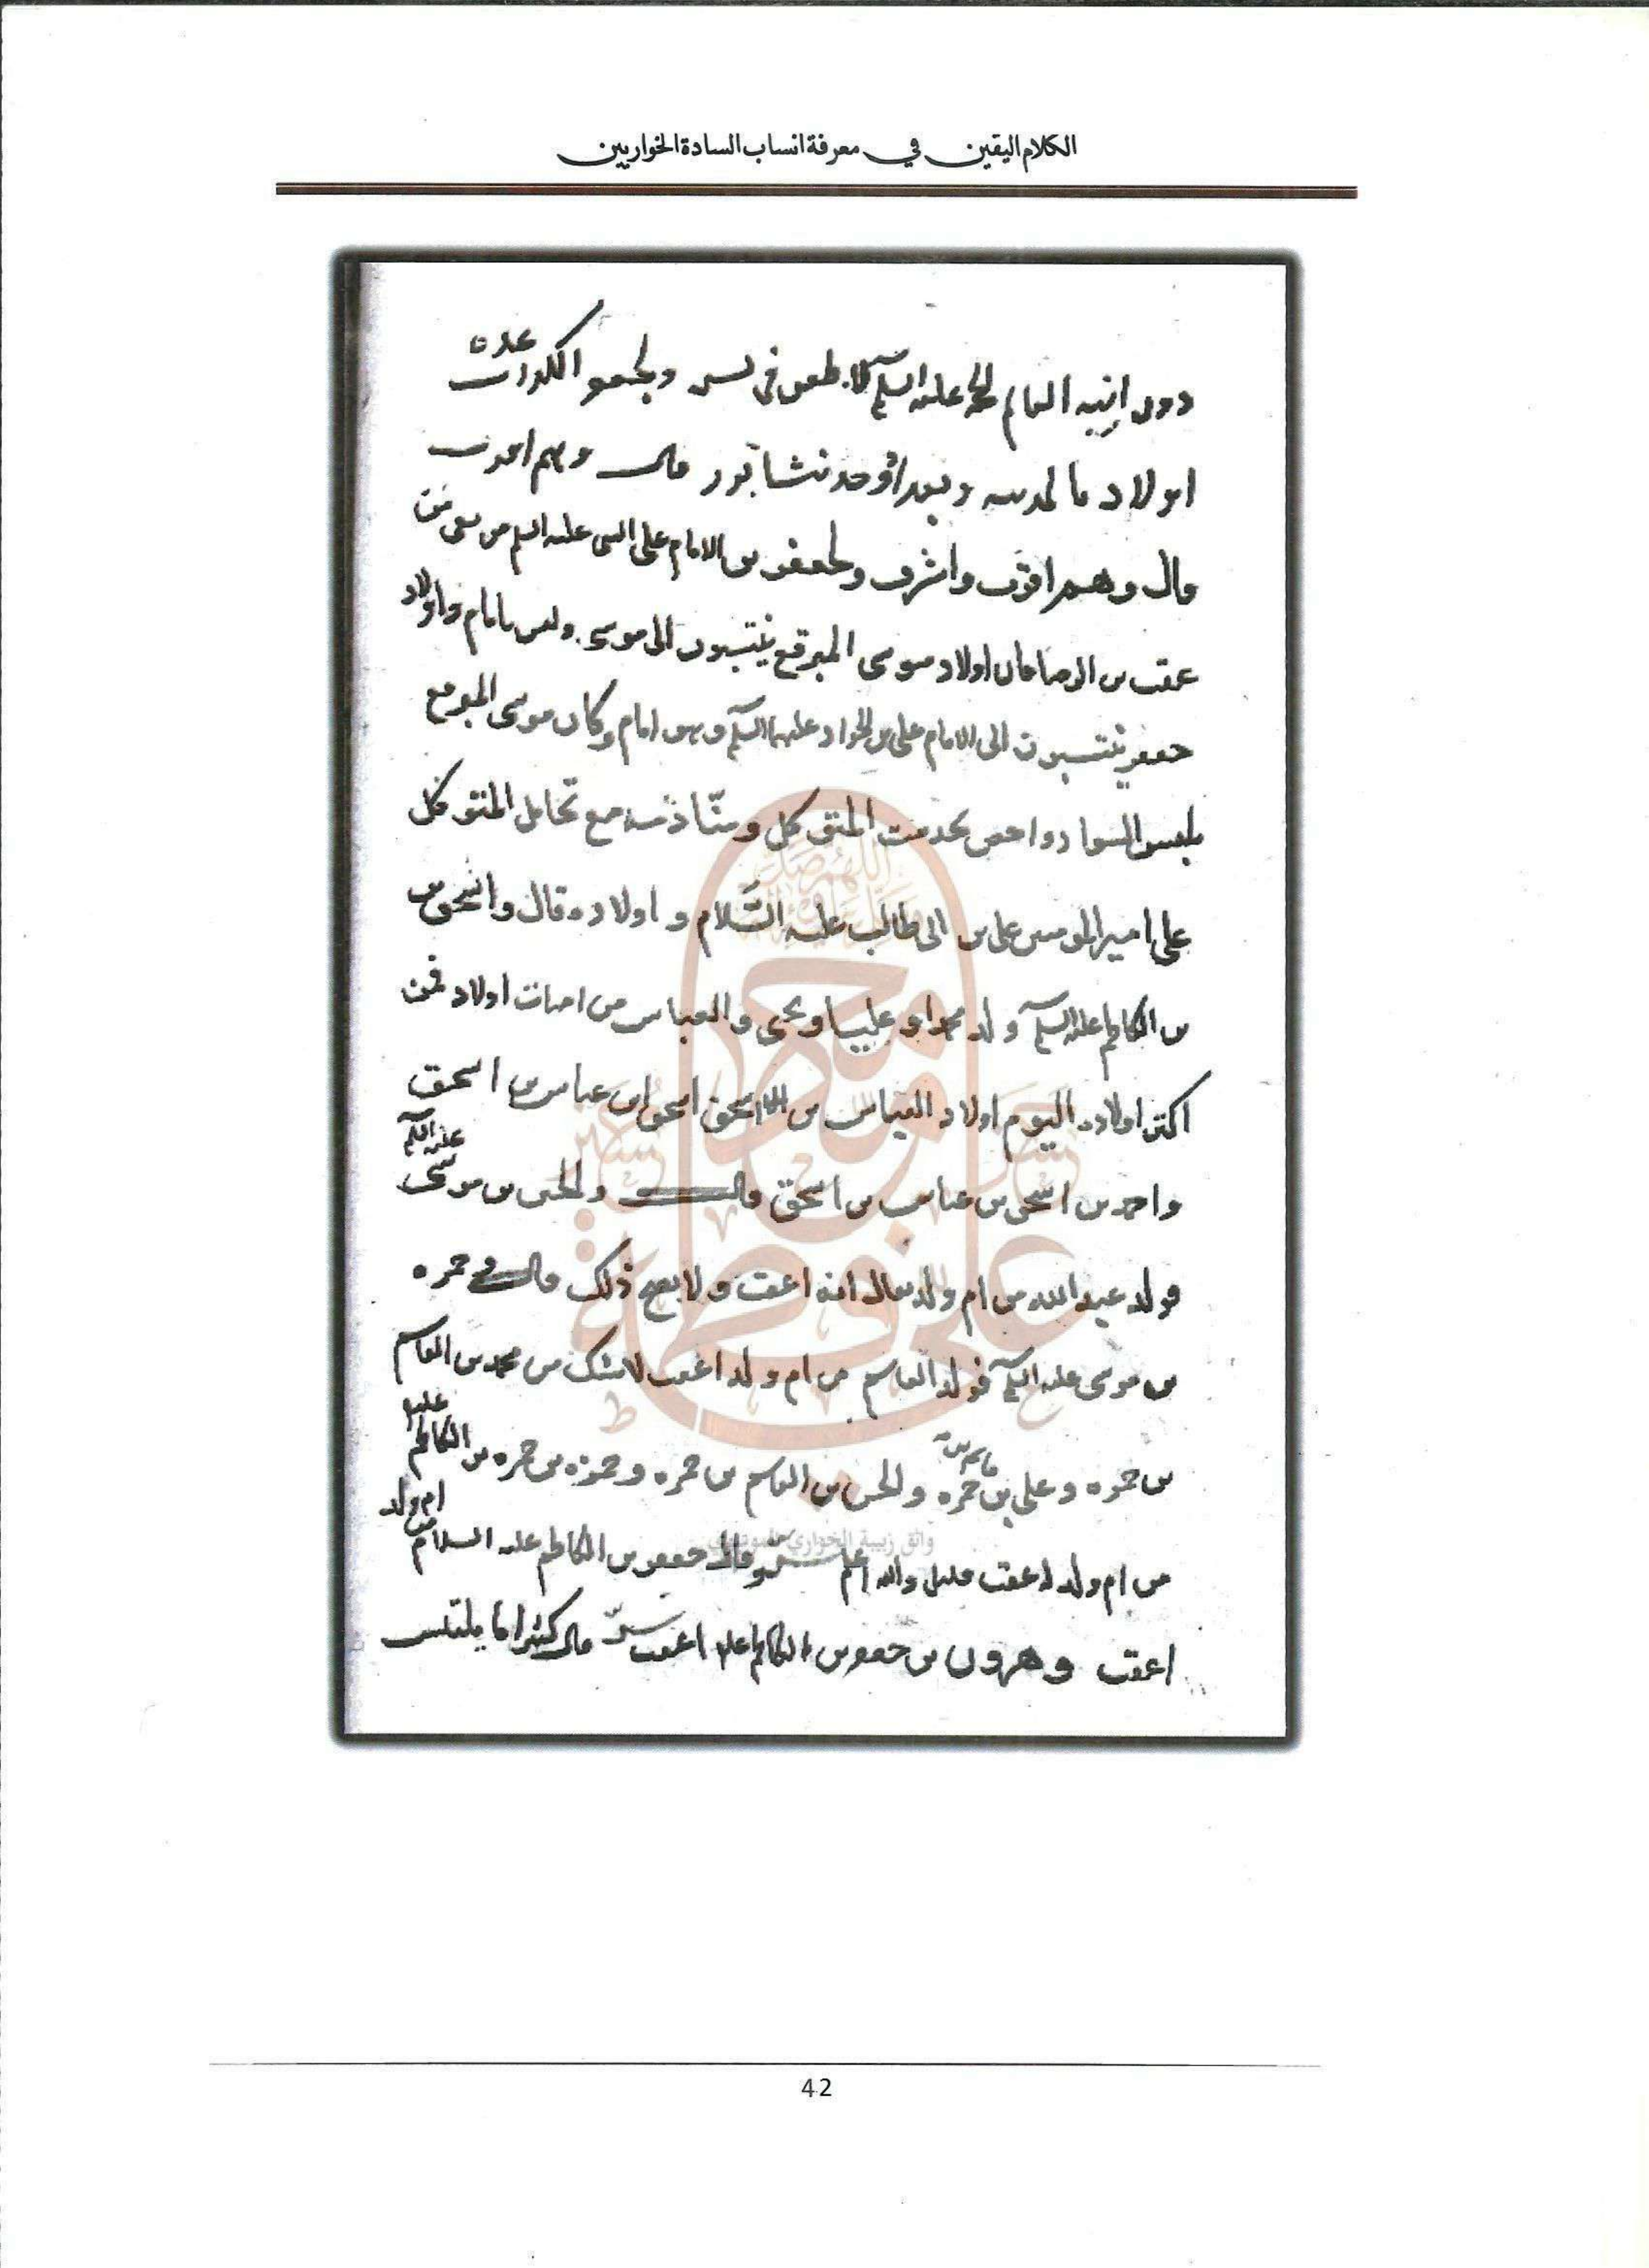 الكلام اليقين في معرفة انساب السادة الخواريين
دون ابنيه الامام الحجة عليه السلم لا طعن في نسب ولجعفر الكذاب عدة
اولاد بالمدينة وببغداد وحد نشابور قال وهم اعرف
قال وهم اقرب واشرف ولجعفر بن الامام على النقى عليه السلم من بقى من
عقب بن الرضا فان اولاد موسى المبرقع ينتسبون الى موسى وليس بامام واولاد
جعفر ينتسبون الى الامام على بن الجواد عليهما السلم وهو امام وكان موسى المبرقع
يلبس السواد واختص بخدمت المتوكل ومنادمته مع تحامل المتوكل
على امير المومنين على بن ابى طالب عليه السَّلام و اولاده قال واسحق بن
بن الكاظم عليه السلم ولد محمدا و عليا ويحيى والعباس من امهات اولاد فمن
اكثر اولاده اليوم اولاد العباس من اسحق اسحق ابن عباس بن اسحق
واحمد بن اسحق بن عباس بن اسحق قال والحسن بن موسى عليه السلم
فولد عبد الله من ام ولد يقال انه اعقب ولا يصح ذلك قال وحمزه
بن موسى عليه السلم فولد القاسم من ام ولد اعقب لا شك من محمد بن القاسم
بن حمزه وعلى بن قاسم بن حمزه والحسن بن القاسم بن حمزه وحمزه بن حمزه بن الكاظم عليه
من ام ولد اعقب قليل والله اعلم قال جعفر بن الكاظم عليه السلام من ام ولد
اعقب وهرون بن جعفر بن الكاظم عليه اعقب قال كثيرا ما يلتبس
واثق زبيبة الخواري الموسوي
42